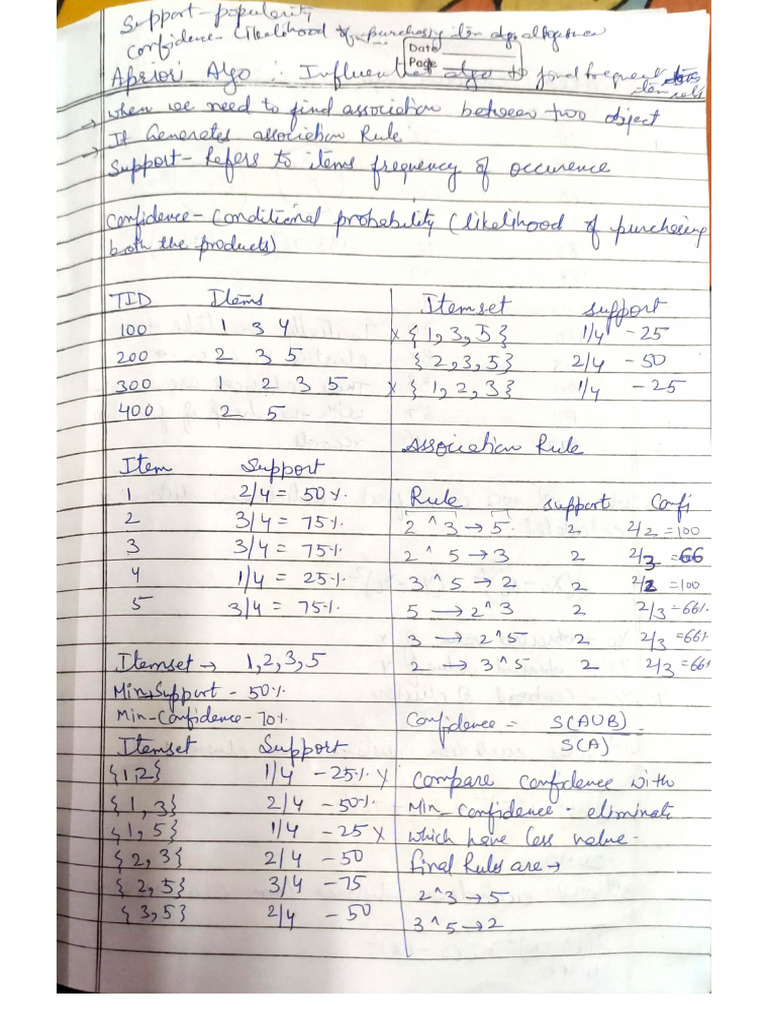 Support - popularity
Confidence - Likelihood of purchasing item altogether
Date
Page
Apriori Algo : Influential algo to find frequent item sets
→ when we need to find association between two object
→ It Generates association Rule
Support - Refers to items frequency of occurence
Confidence - Conditional probability (likelihood of purchasing
both the products)
TID Items
100 1 3 4
200 2 3 5
300 1 2 3 5
400 2 5
Item Support
1 2/4 = 50%.
2 3/4 = 75%
3 3/4 = 75%
4 1/4 = 25%
5 3/4 = 75%.
Itemset → 1,2,3,5
Min-Support - 50%
Min-Confidence - 70%
Itemset Support
{1,2} 1/4 - 25% x
{1,3} 2/4 - 50%
{1,5} 1/4 - 25 x
{2,3} 2/4 - 50
{2,5} 3/4 - 75
{3,5} 2/4 - 50
Itemset support
x {1,3,5} 1/4 - 25
{2,3,5} 2/4 - 50
x {1,2,3} 1/4 - 25
Association Rule
Rule support Confi
2^3 → 5 2 2/2 = 100
2^5 → 3 2 2/3 = 66
3^5 → 2 2 2/2 = 100
5 → 2^3 2 2/3 = 66%
3 → 2^5 2 2/3 = 66%
2 → 3^5 2 2/3 = 66%
Confidence = S(AUB)
S(A)
Compare confidence with
Min_confidence. eliminate
which have less value.
final Rules are →
2^3 → 5
3^5 → 2